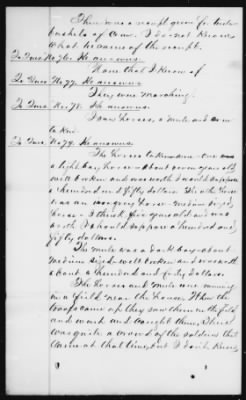 There was a receipt given for twelve
bushels of Corn. I do not know
what became of the receipt.
To Inter. No. 76. He answers.
None that I know of
To Inter. No. 77. He answers
They were marching.
To Inter. No. 78. He answers.
Two horses, a mule and corn
To Inter. No 79. He answers.
The horses taken were one was
a light bay, horse about seven years old,
well broken and was worth I would suppose
a hundred and fifty dollars. The other horse
was an iron grey horse medium sized,
horse I think five years old and was
worth I should suppose a hundred and
fifty dollars.
The mule was a dark bay about
medium sized well broken and was worth
about a hundred and forty dollars.
The horses and mule was running
in a field near the house. When the
troops came up they saw them in the field
and went and caught them. There
was quite a crowd of the soldiers that
came at that time, but I don't know